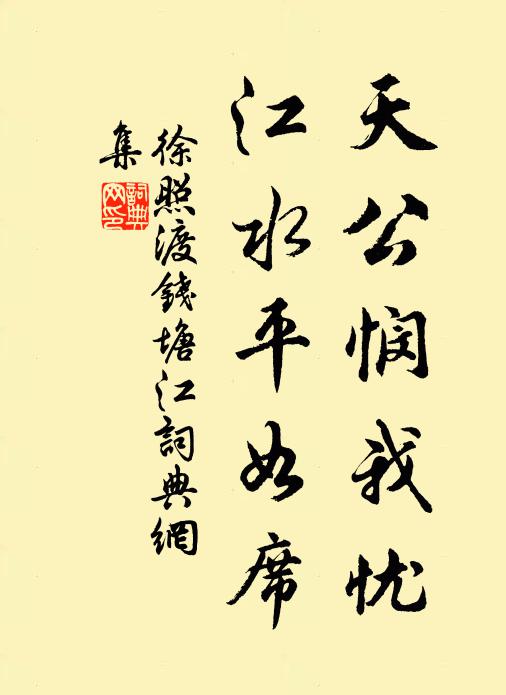 天公悯我忧
江水平如席
徐照渡錢塘江詞典網
集
詞典
网印